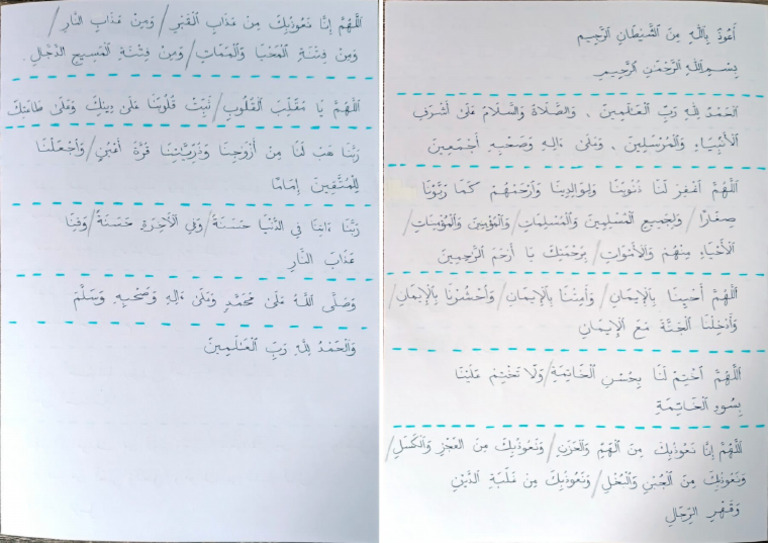 أَعُوذُ بِاللَّهِ مِنَ الشَّيْطَانِ الرَّجِيمِ
بِسْمِ اللَّهِ الرَّحْمَنِ الرَّحِيمِ
الحَمْدُ لِلَّهِ رَبِّ الْعَالَمِينَ ، وَالصَّلَاةُ وَالسَّلَامُ عَلَىٰ أَشْرَفِ
الْأَنْبِيَاءِ وَالْمُرْسَلِينَ ، وَعَلَىٰ ءَالِهِ وَصَحْبِهِ أَجْمَعِينَ
اللَّهُمَّ اغْفِرْ لَنَا ذُنُوبَنَا وَلِوَالِدِينَا وَارْحَمْهُمْ كَمَا رَبَّوْنَا
صِغَارًا / وَلِجَمِيعِ الْمُسْلِمِينَ وَالْمُسْلِمَاتِ / وَالْمُؤْمِنِينَ وَالْمُؤْمِنَاتِ /
الْأَحْيَاءِ مِنْهُمْ وَالْأَمْوَاتِ / بِرَحْمَتِكَ يَا أَرْحَمَ الرَّاحِمِينَ
اللَّهُمَّ أَحْيِنَا بِالْإِيمَانِ / وَأَمِتْنَا بِالْإِيمَانِ / وَاحْشُرْنَا بِالْإِيمَانِ /
وَأَدْخِلْنَا الْجَنَّةَ مَعَ الْإِيمَانِ
اللَّهُمَّ اخْتِمْ لَنَا بِحُسْنِ الْخَاتِمَةِ / وَلَا تَخْتِمْ عَلَيْنَا
بِسُوءِ الْخَاتِمَةِ
اللَّهُمَّ إِنَّا نَعُوذُبِكَ مِنَ الْهَمِّ وَالْحَزَنِ / وَنَعُوذُبِكَ مِنَ الْعَجْزِ وَالْكَسَلِ /
وَنَعُوذُبِكَ مِنَ الْجُبْنِ وَالْبُخْلِ / وَنَعُوذُبِكَ مِنْ غَلَبَةِ الدَّيْنِ
وَقَهْرِ الرِّجَالِ
اللَّهُمَّ إِنَّا نَعُوذُبِكَ مِنْ عَذَابِ الْقَبْرِ / وَمِنْ عَذَابِ النَّارِ /
وَمِنْ فِتْنَةِ الْمَحْيَا وَالْمَمَاتِ / وَمِنْ فِتْنَةِ الْمَسِيحِ الدَّجَّالِ .
اللَّهُمَّ يَا مُقَلِّبَ الْقُلُوبِ / ثَبِّتْ قُلُوبَنَا عَلَىٰ دِينِكَ وَعَلَىٰ طَاعَتِكَ
رَبَّنَا هَبْ لَنَا مِنْ أَزْوَجِنَا وَذُرِّيَّتِنَا قُرَّةَ أَعْيُنٍ / وَاجْعَلْنَا
لِلْمُتَّقِينَ إِمَامًا
رَبَّنَا ءَاتِنَا فِي الدُّنْيَا حَسَنَةً / وَفِي الْآخِرَةِ حَسَنَةً / وَقِنَا
عَذَابَ النَّارِ
وَصَلَّى اللَّهُ عَلَىٰ مُحَمَّدٍ وَعَلَىٰ ءَالِهِ وَصَحْبِهِ وَسَلَّمَ
وَالْحَمْدُ لِلَّهِ رَبِّ الْعَالَمِينَ